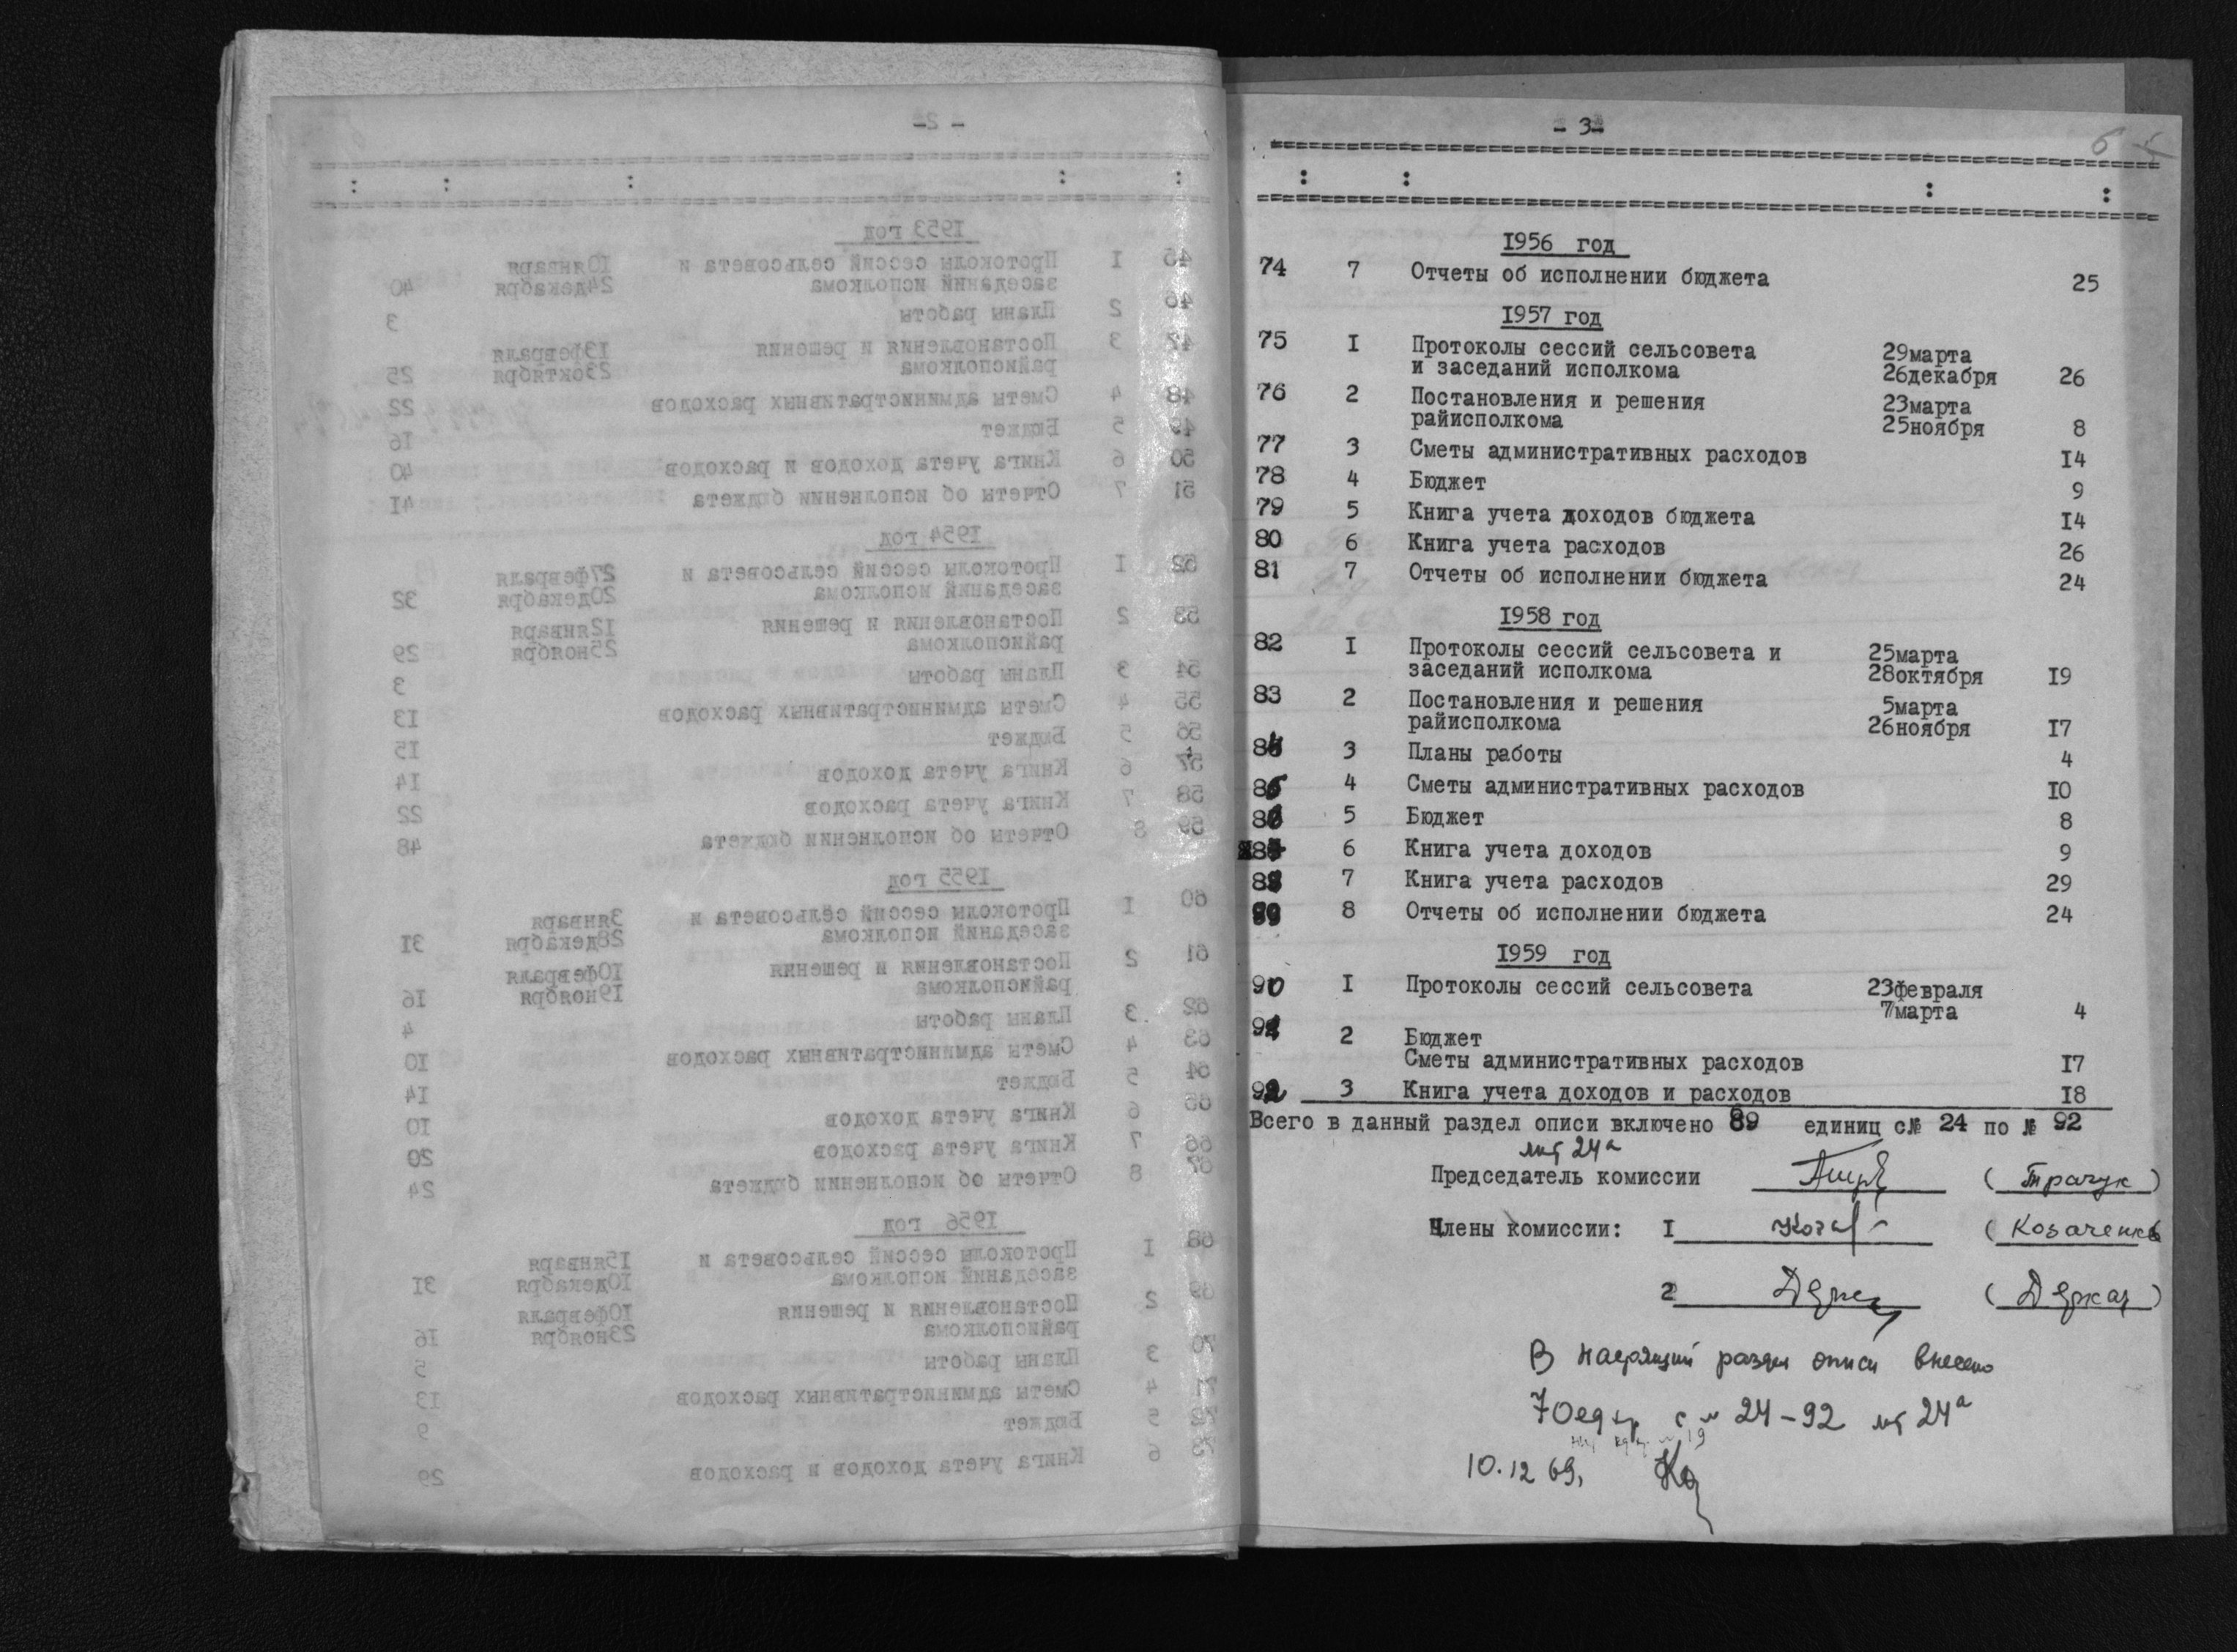 - 3-
6
1956 год
74 7 Отчеты об исполнении бюджета 25
1957 год
75 I Протоколы сессий сельсовета 29марта
и заседаний исполкома 26декабря 26
76 2 Постановления и решения 23марта
райисполкома 25ноября 8
77 3 Сметы административных расходов 14
78 4 Бюджет 9
79 5 Книга учета доходов бюджета 14
80 6 Книга учета расходов 26
81 7 Отчеты об исполнении бюджета 24
1958 год
82 I Протоколы сессий сельсовета и 25марта
заседаний исполкома 28октября 19
83 2 Постановления и решения 5марта
райисполкома 26ноября 17
84 3 Планы работы 4
85 4 Сметы административных расходов 10
86 5 Бюджет 8
87 6 Книга учета доходов 9
88 7 Книга учета расходов 29
89 8 Отчеты об исполнении бюджета 24
1959 год
90 I Протоколы сессий сельсовета 23февраля
7марта 4
91 2 Бюджет
Сметы административных расходов 17
92 3 Книга учета доходов и расходов 18
Всего в данный раздел описи включено 89 единиц с№ 24 по № 92
лит 24а
Председатель комиссии (Трачук)
Члены комиссии: I (Козаченко
2 (Деркач)
В настоящий раздел описи внесено
70 ед хр с № 24-92 лит 24а
10.12 69,
- 2 -
1953 год
45 I Протоколы сессий сельсовета и 10января
заседаний исполкома 24декабря 40
46 2 Планы работы 3
47 3 Постановления и решения 13февраля
райисполкома 23октября 25
48 4 Сметы административных расходов 22
49 5 Бюджет 16
50 6 Книга учета доходов и расходов 40
51 7 Отчеты об исполнении бюджета 41
1954 год
52 I Протоколы сессий сельсовета и 27февраля
заседаний исполкома 20декабря 32
53 2 Постановления и решения 12января
райисполкома 25ноября 29
54 3 Планы работы 3
55 4 Сметы административных расходов 13
56 5 Бюджет 15
57 6 Книга учета доходов 14
58 7 Книга учета расходов 22
59 8 Отчеты об исполнении бюджета 48
1955 год
60 I Протоколы сессий сельсовета и 3января
заседаний исполкома 28декабря 31
61 2 Постановления и решения 10февраля
райисполкома 19ноября 16
62 3 Планы работы 4
63 4 Сметы административных расходов 10
64 5 Бюджет 14
65 6 Книга учета доходов 10
66 7 Книга учета расходов 20
67 8 Отчеты об исполнении бюджета 24
1956 год
68 I Протоколы сессий сельсовета и 15января
заседаний исполкома 10декабря 31
69 2 Постановления и решения 10февраля
райисполкома 23ноября 16
70 3 Планы работы 5
71 4 Сметы административных расходов 13
72 5 Бюджет 9
73 6 Книга учета доходов и расходов 29